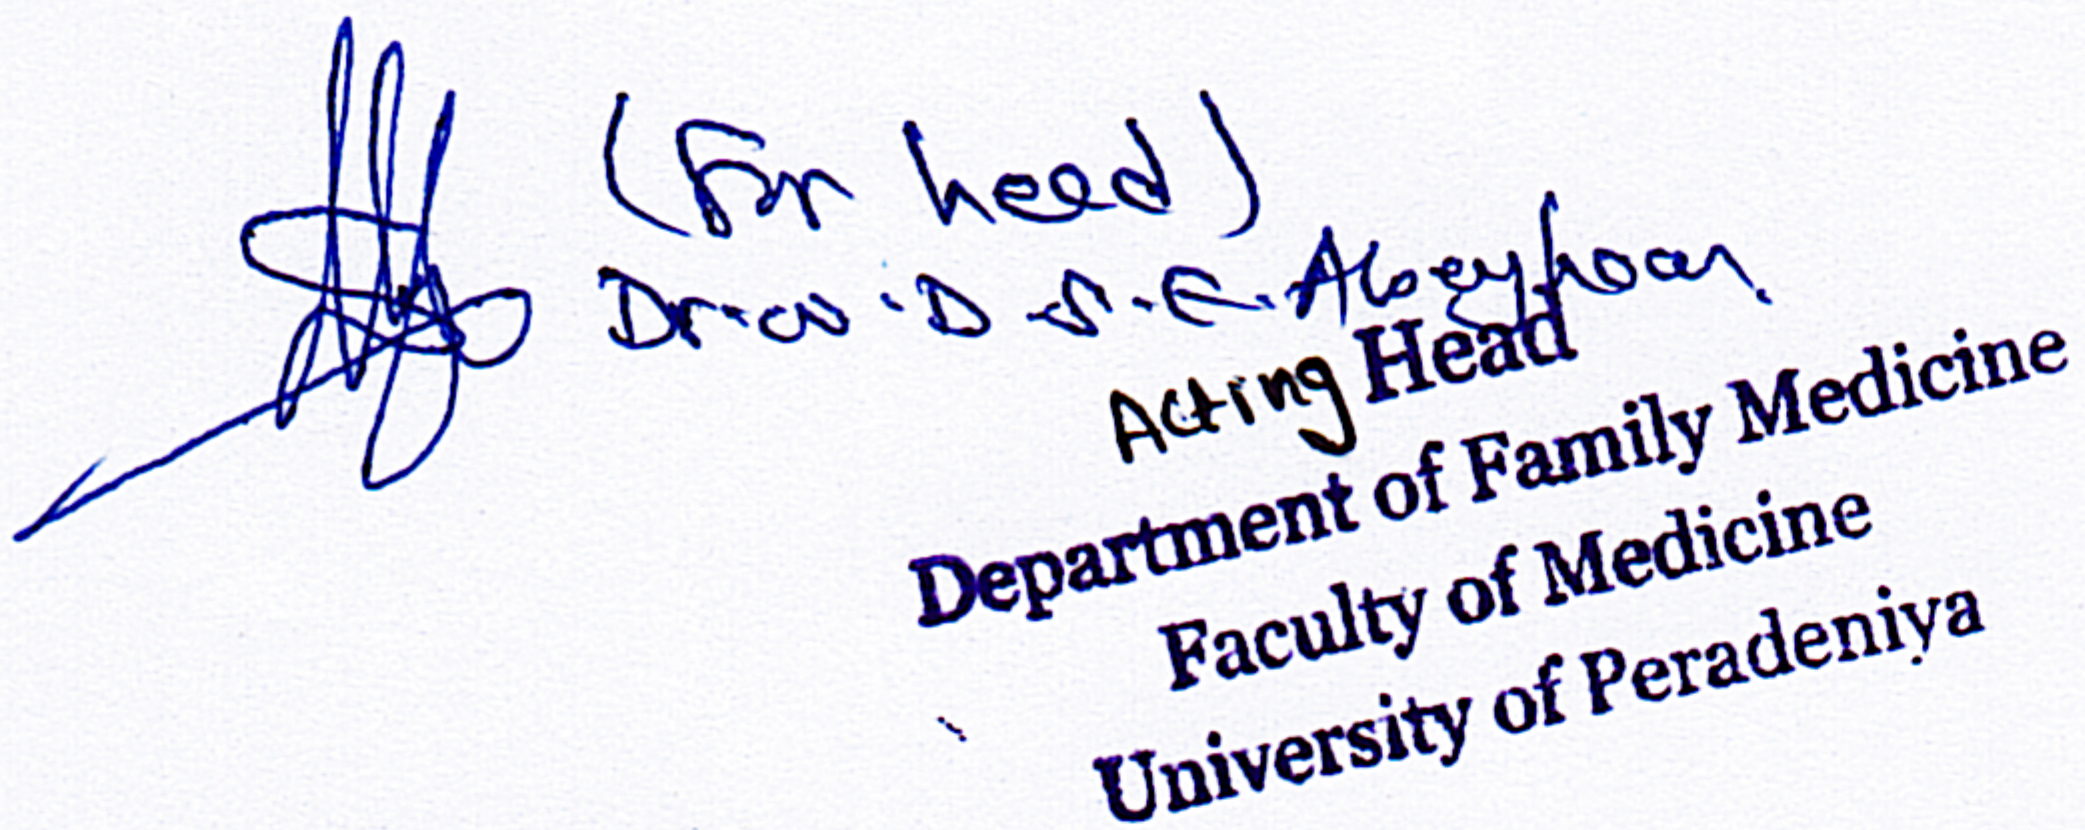 (For head)
Dr. W. D. S. E.
Acting Head
Department of Family Medicine
Faculty of Medicine
University of Peradeniya